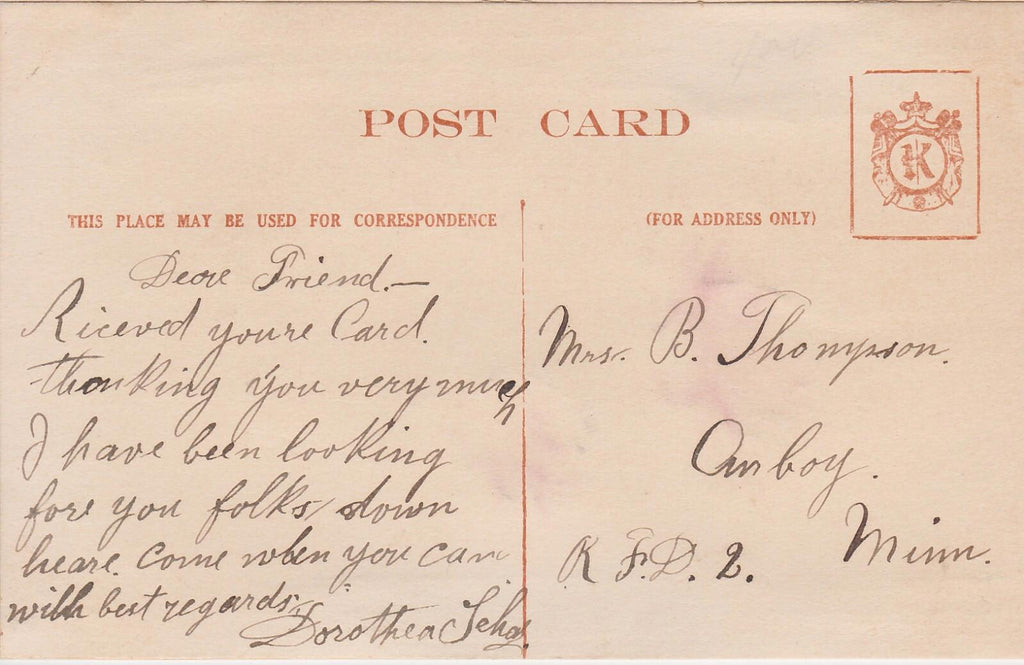 POST CARD
K
THIS PLACE MAY BE USED FOR CORRESPONDENCE
(FOR ADDRESS ONLY)
Deare Friend.—
Riceved youre Card.
thanking you very much
I have been looking
fore you folks down
heare. Come when you can
with best regards.
Dorothea
Mrs. B. Thompson.
Amboy.
Minn.
R F.D. 2.